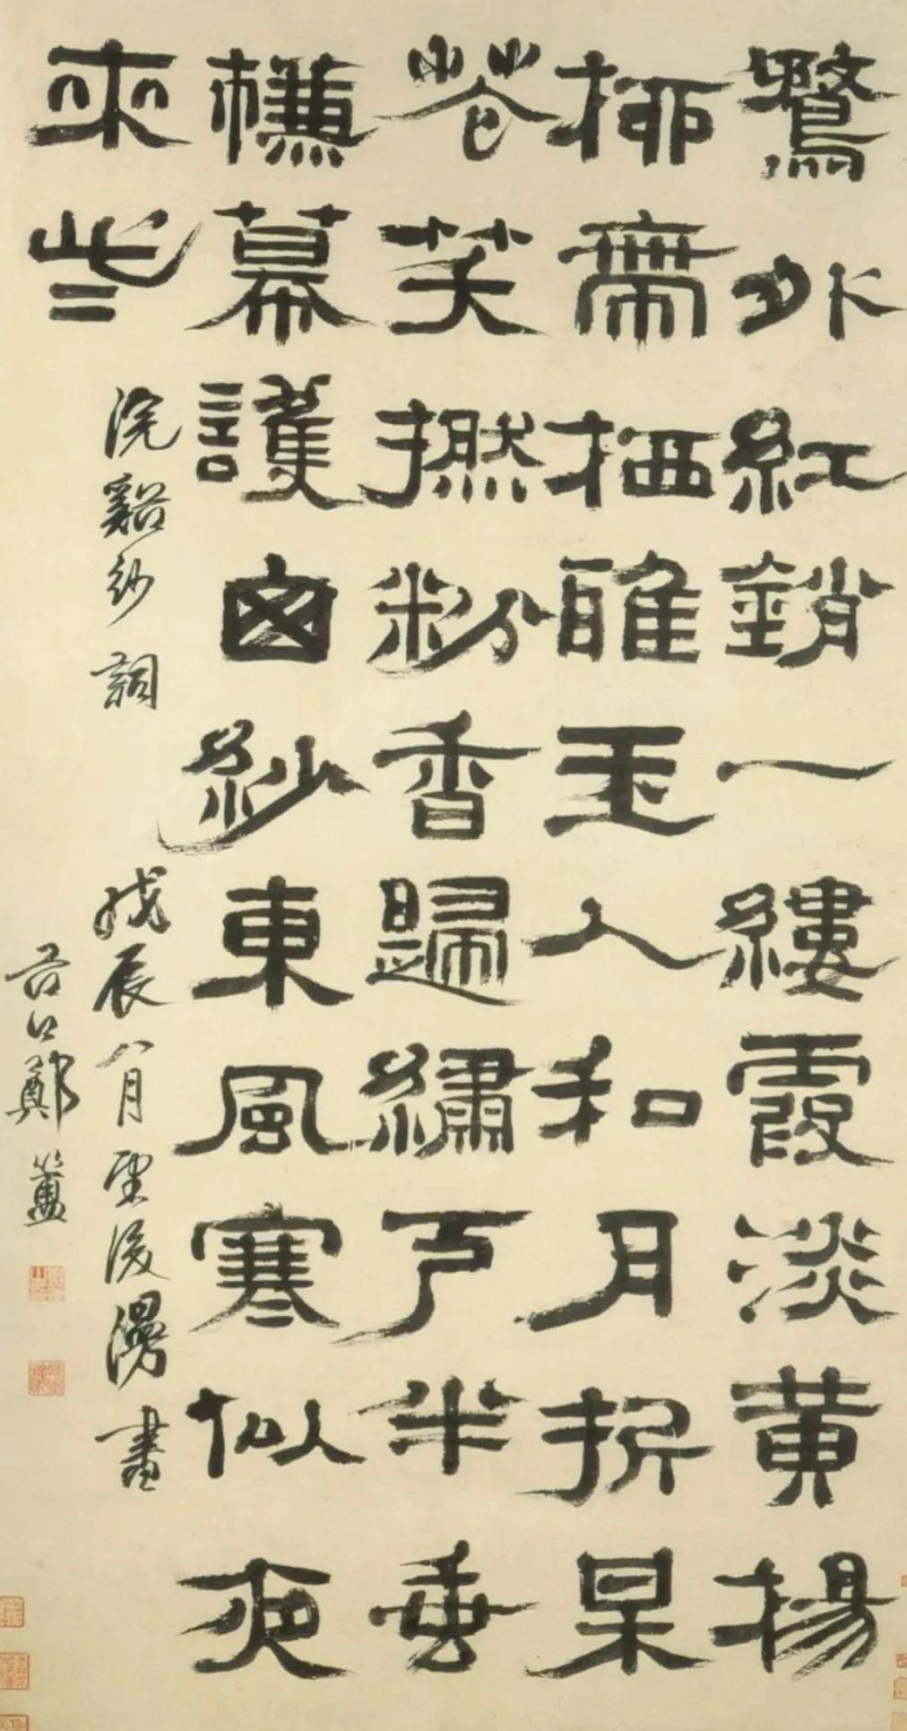 鶩外紅銷一縷霞淡黃楊
柳帶栖鴉玉人和月折呆
花笑撚粉香歸繡戶半垂
簾幕護窗紗東風寒似夜
來些
浣谿紗詞 戊辰八月望後漫書
谷口鄭簠